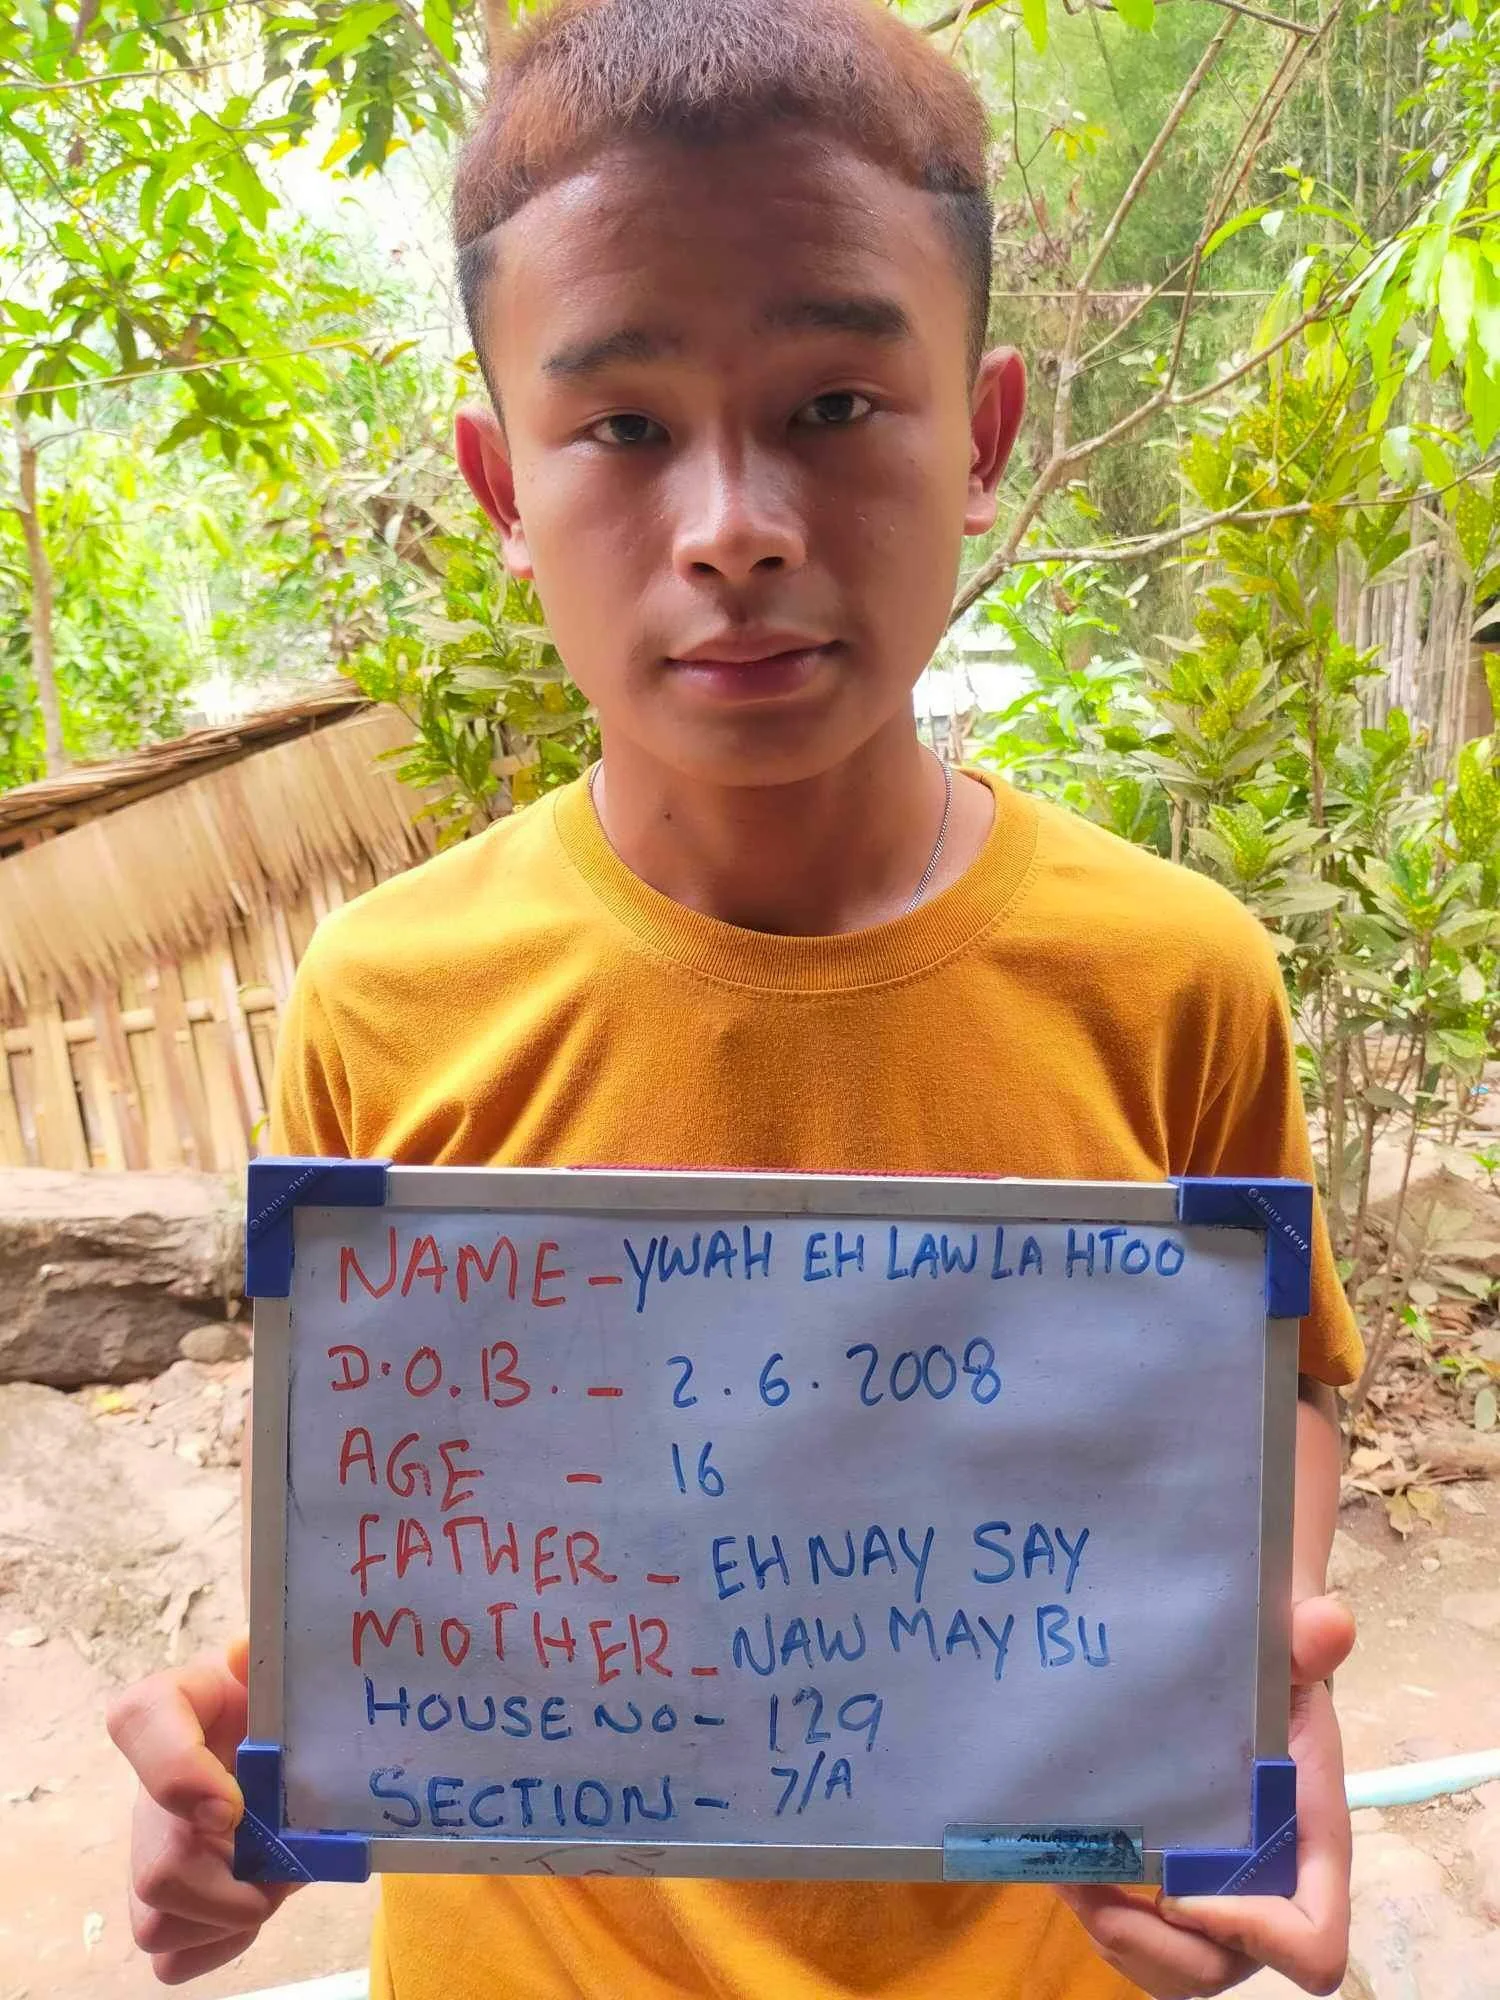 NAME - YWAH EH LAW LA HTOO
D.O.B. - 2.6.2008
AGE - 16
FATHER - EH NAY SAY
MOTHER - NAW MAY BU
HOUSE NO - 129
SECTION - 7/A